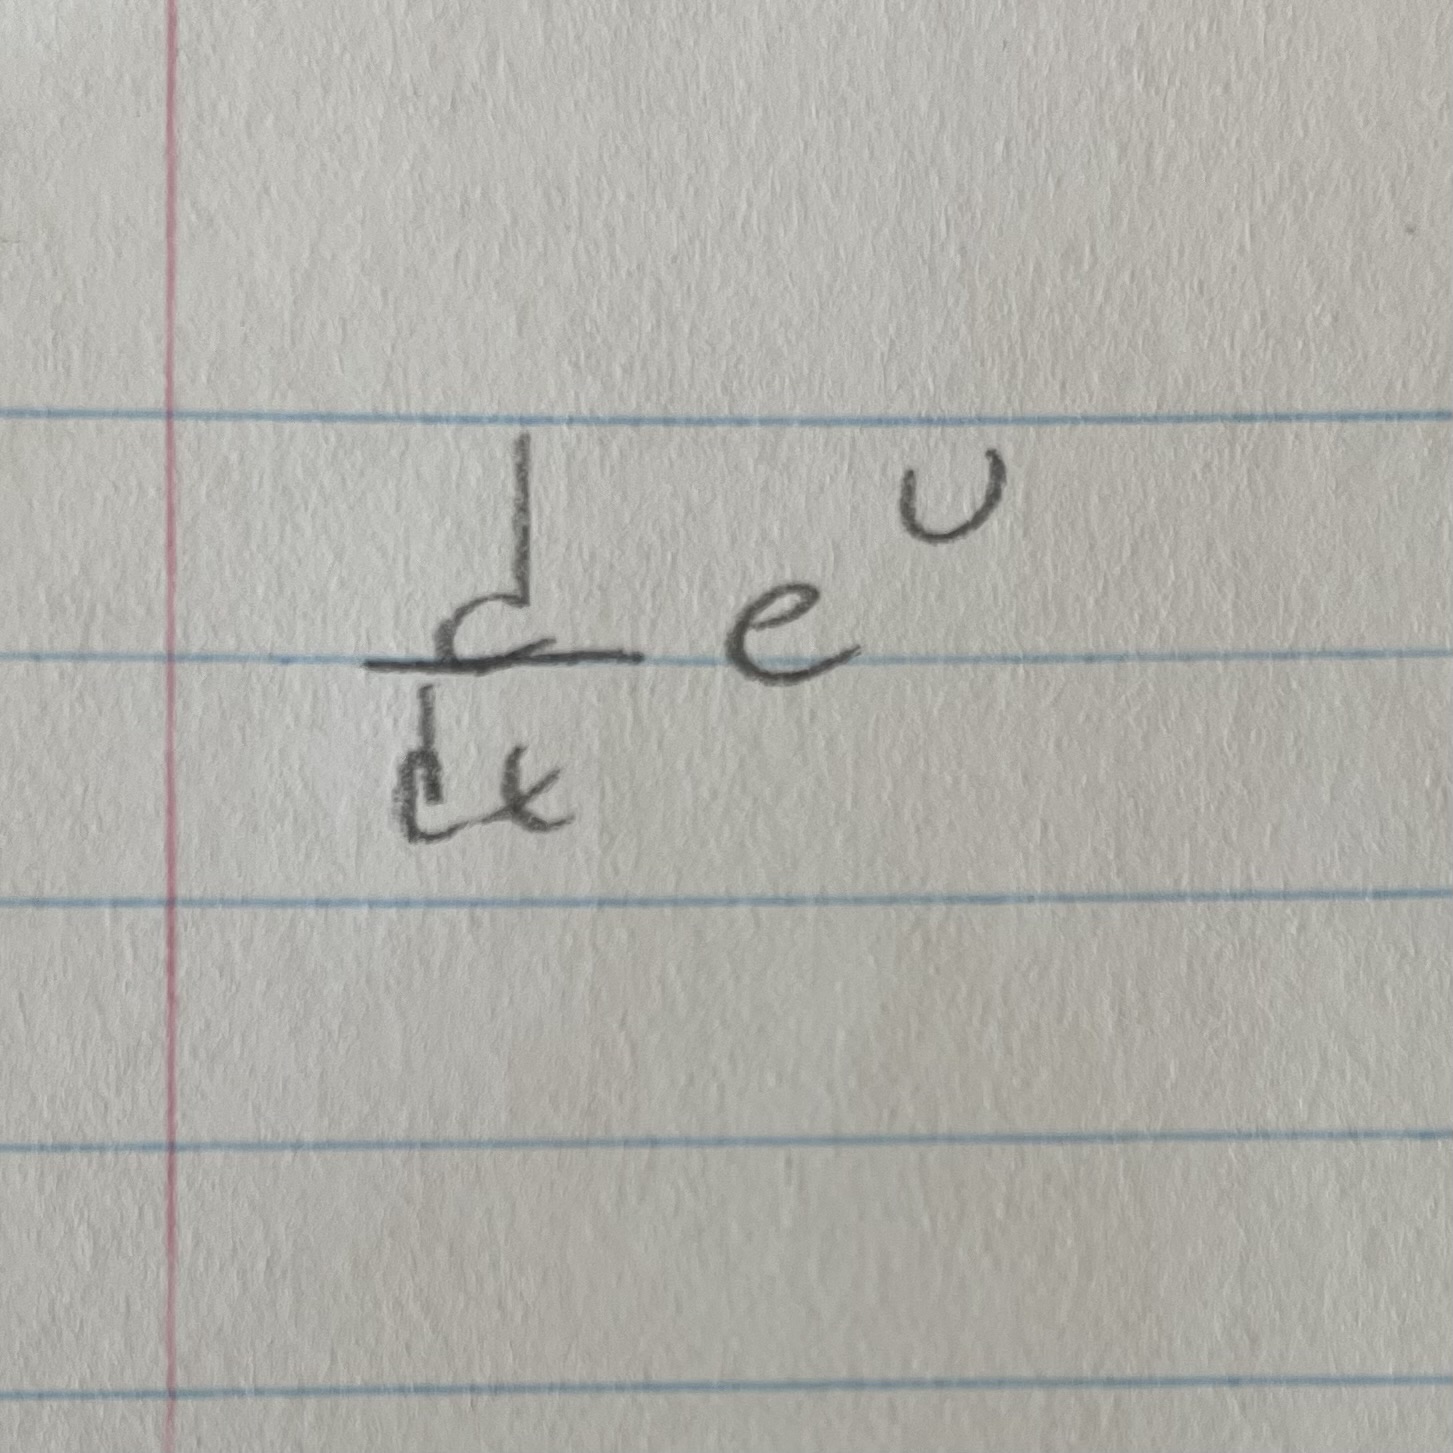 d/dx e^u